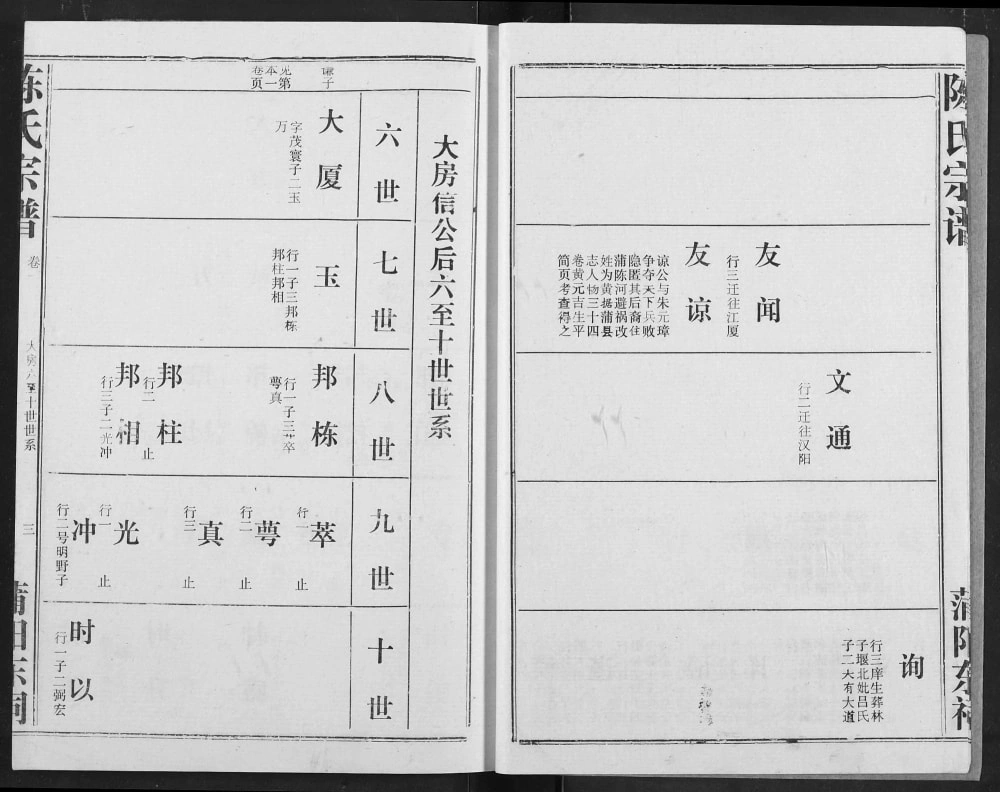 陈氏宗谱
蒲阳东祠
友闻
行三迁往江厦
友谅
谅公与朱元璋
争夺天下兵败
隐匿其后裔住
蒲陈河避祸改
姓为黄据蒲县
志人物三十四
卷黄元吉生平
简页考查得之
文通
行二迁往汉阳
询
行三庠生葬林
子堰北妣吕氏
子二天有大道
大房信公后六至十世世系
六世
七世
八世
九世
十世
谦子
见第
本一
卷页
大厦
字茂寰子二玉
万
玉
行一子三邦栋
邦柱邦相
邦栋
行一子三萃
萼真
邦柱
行二 止
邦相
行三子二光冲
萃
行一 止
萼
行二 止
真
行三 止
光
行一 止
冲
行二号明野子
时以
行一子二弼宏
陈氏宗谱
卷
大房六至十世世系
三
蒲阳东祠